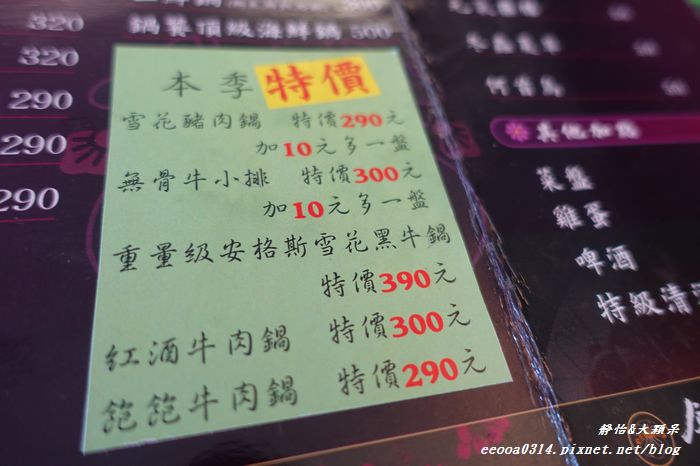 320
320
290
290
290
鍋饕頂級海鮮鍋 500
本季特價
雪花豬肉鍋 特價290元
加10元多一盤
無骨牛小排 特價300元
加10元多一盤
重量級安格斯雪花黑牛鍋
特價390元
紅酒牛肉鍋 特價300元
飽飽牛肉鍋 特價290元
何首烏
其他加點
菜盤
雞蛋
啤酒
特級清
靜怡&大顆呆
eeooa0314.pixnet.net/blog